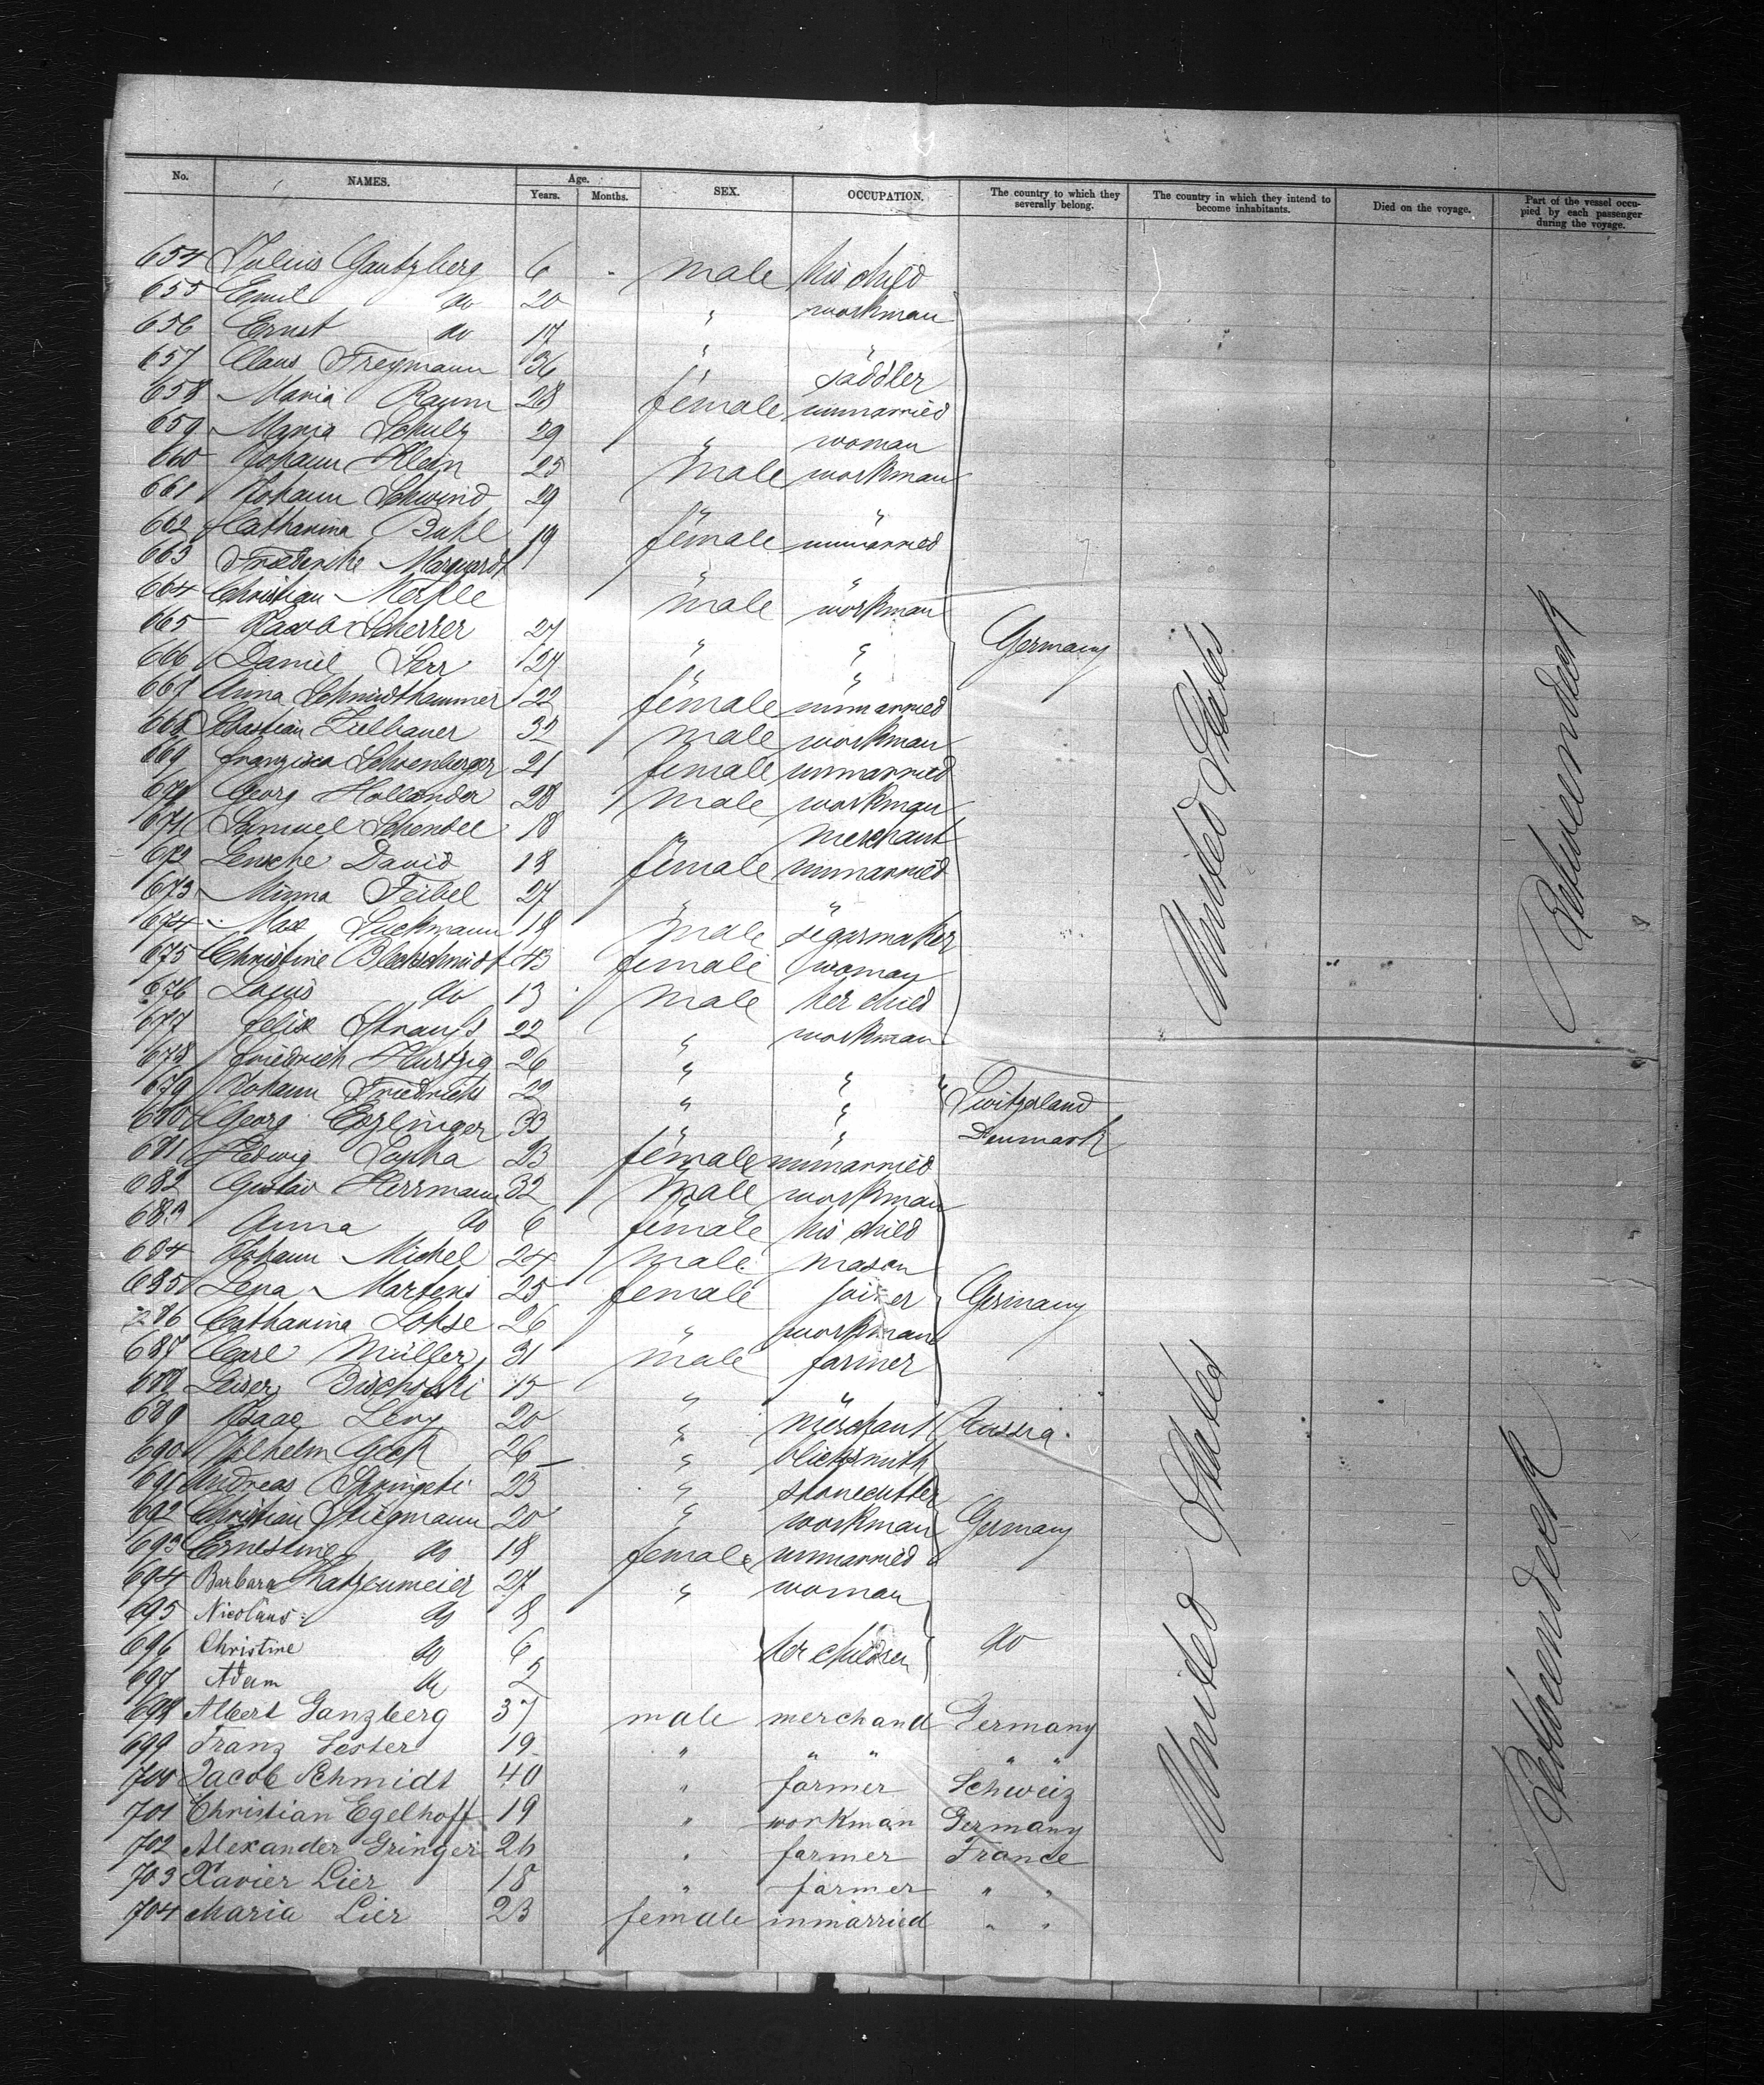 No. NAMES. Age. Years. Months. SEX. OCCUPATION. The country to which they severally belong. The country in which they intend to become inhabitants. Died on the voyage. Part of the vessel occupied by each passenger during the voyage.
654 Julius Gantzberg 6 male his child
655 Emil do 20 " workman
656 Ernst do 17 " "
657 Claus Tregmann 36 " saddler
658 Maria Raum 28 female unmarried
659 Maria Schulz 29 " woman
660 Johann Klein 25 male workman
661 Johann Schwind 29 " "
662 Catharina Buhl 19 female unmarried
663 Friedericke Marquardt " "
664 Christian Merkle male workman
665 Jacob Scherrer 27 " "
666 Daniel Serr 24 " "
667 Anna Schmidthammer 22 female unmarried
668 Sebastian 32 male workman
669 Franziska Schoenberger 21 female unmarried
670 Georg Hollander 28 male workman
671 Samuel Schendel 18 " merchant
672 Lensche David 18 female unmarried
673 Minna Feibel 27 " "
674 Max Luckmann 19 male segarmaker
675 Christine Blechschmidt 43 female woman
676 Louis do 13 male her child
677 Felix Strauss 22 " workman
678 Friedrich Hertzig 26 " "
679 Johann Friedrichs 22 " " Switzerland
680 Georg Eszlinger 33 " " Denmark
681 Hedwig Sopha 23 female unmarried
682 Gustav Herrmann 32 male workman
683 Anna do 6 female his child
684 Johann Michel 24 male mason
685 Lena Martens 25 female joiner
686 Catharina Lohse 26 " workman
687 Carl Müller 31 male farmer
688 Leiser 15 "
689 Isaac Levy 20 " merchant Russia.
690 Wilhelm Geck 26 " blicksmith
691 Andreas 23 " stonecutter
692 Christian Stiegmann 20 " workman
693 Ernestine do 18 female unmarried
694 Barbara Katzenmeier 27 " woman
695 Nicolaus do 8
696 Christine do 6 her children do
697 Adam do 2
698 Albert Ganzberg 37 male merchand Germany
699 Franz Lester 19 " " " " "
700 Jacob Schmidt 40 " farmer Schweiz
701 Christian Egelhoff 19 " workman Germany
702 Alexander Gringer 26 " farmer France
703 Xavier Lier 18 " farmer " "
704 Maria Lier 23 female inmarried " "
Germany
Germany
Germany
United States
United States
Betweendeck
Betweendeck